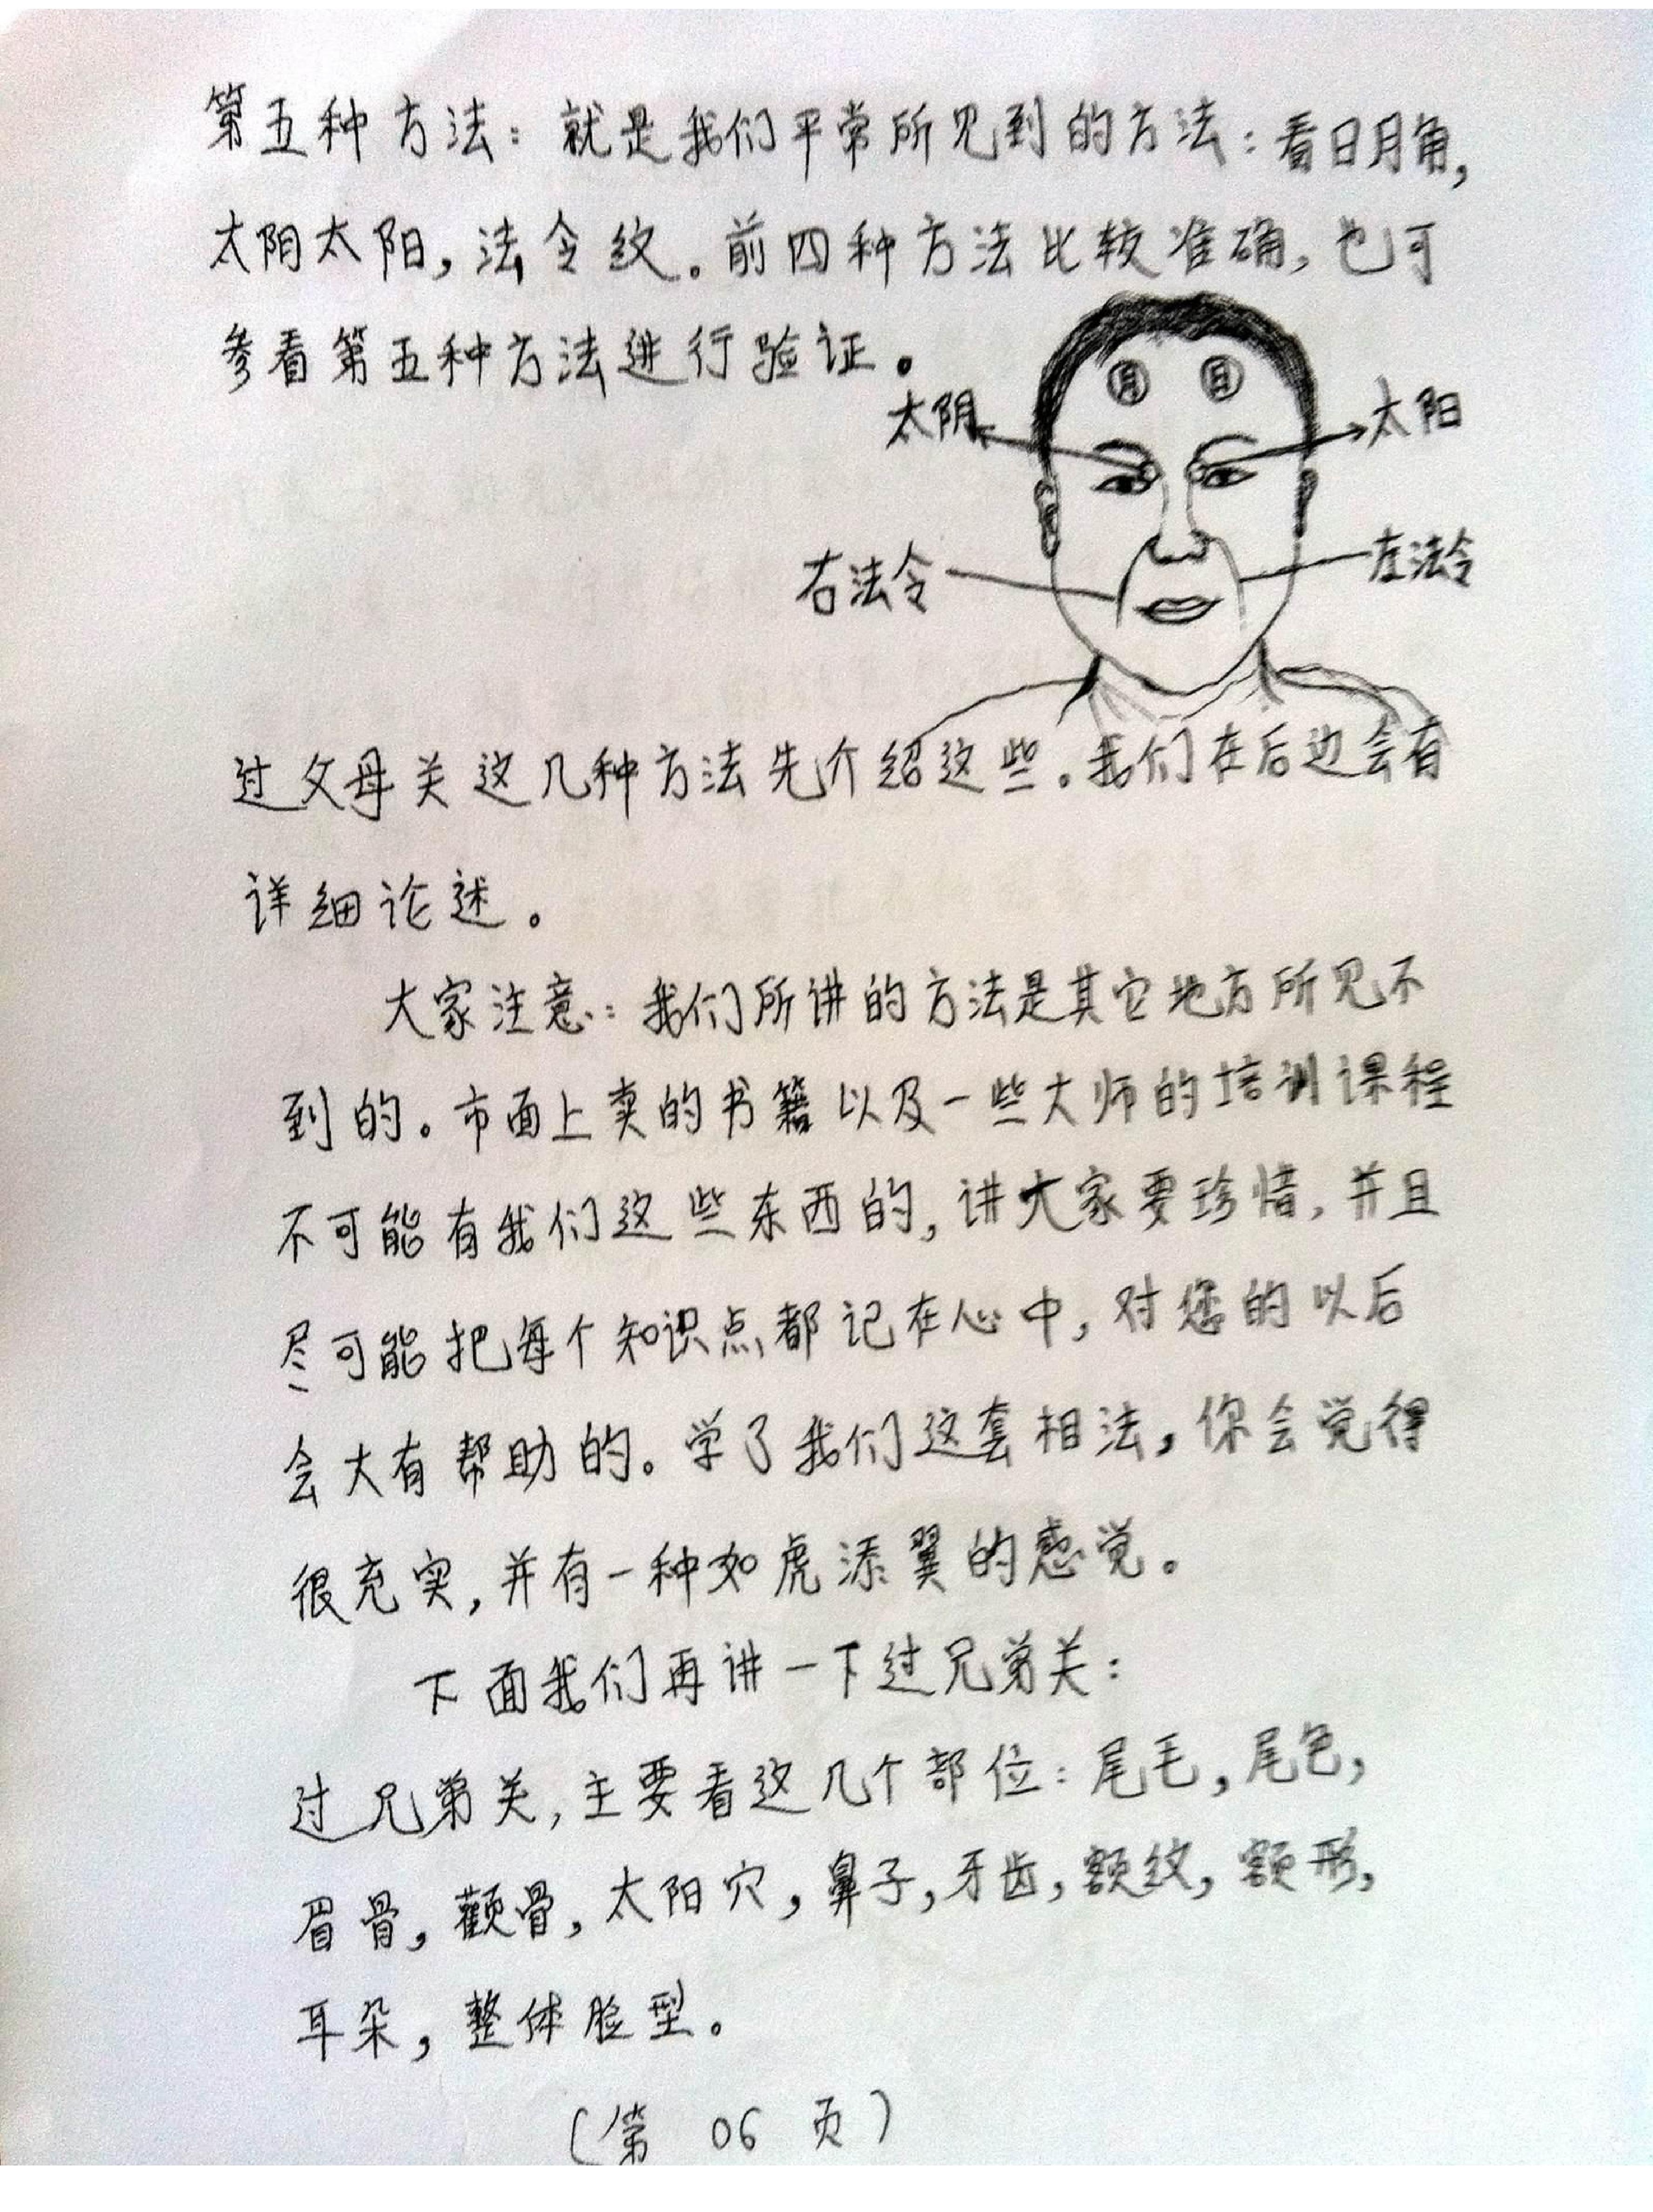 第五种方法：就是我们平常所见到的方法：看日月角，
太阴太阳，法令纹。前四种方法比较准确，也可
参看第五种方法进行验证。
月 日
太阴 太阳
右法令 左法令
过父母关这几种方法先介绍这些。我们在后边会有
详细论述。
大家注意：我们所讲的方法是其它地方所见不
到的。市面上卖的书籍以及一些大师的培训课程
不可能有我们这些东西的，讲大家要珍惜，并且
尽可能把每个知识点都记在心中，对您的以后
会大有帮助的。学了我们这套相法，你会觉得
很充实，并有一种如虎添翼的感觉。
下面我们再讲一下过兄弟关：
过兄弟关，主要看这几个部位：尾毛，尾色，
眉骨，颧骨，太阳穴，鼻子，牙齿，额纹，额形，
耳朵，整体脸型。
(第 06 页)